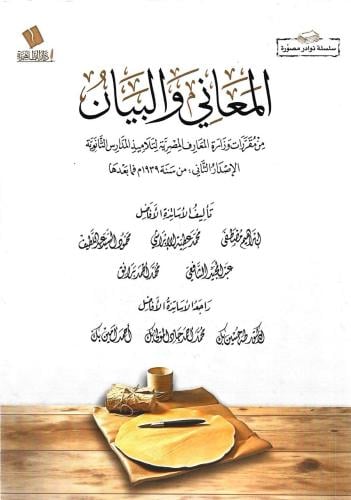 سلسلة نوادر مصورة
دار الظاهرية
المعاني والبيان
من مقررات وزارة المعارف المصرية لتلاميذ المدارس الثانوية
الإصدار الثاني: من سنة ١٩٣٩م فما بعدها
تأليف الأساتذة الأفاضل
إبراهيم مصطفى محمد عطية الإبراشي محمود السيد عبد اللطيف
عبد المجيد الشافعي محمد أحمد برانق
راجعه الأساتذة الأفاضل
الدكتور طه حسين بك محمد أحمد جاد المولى بك أحمد أمين بك